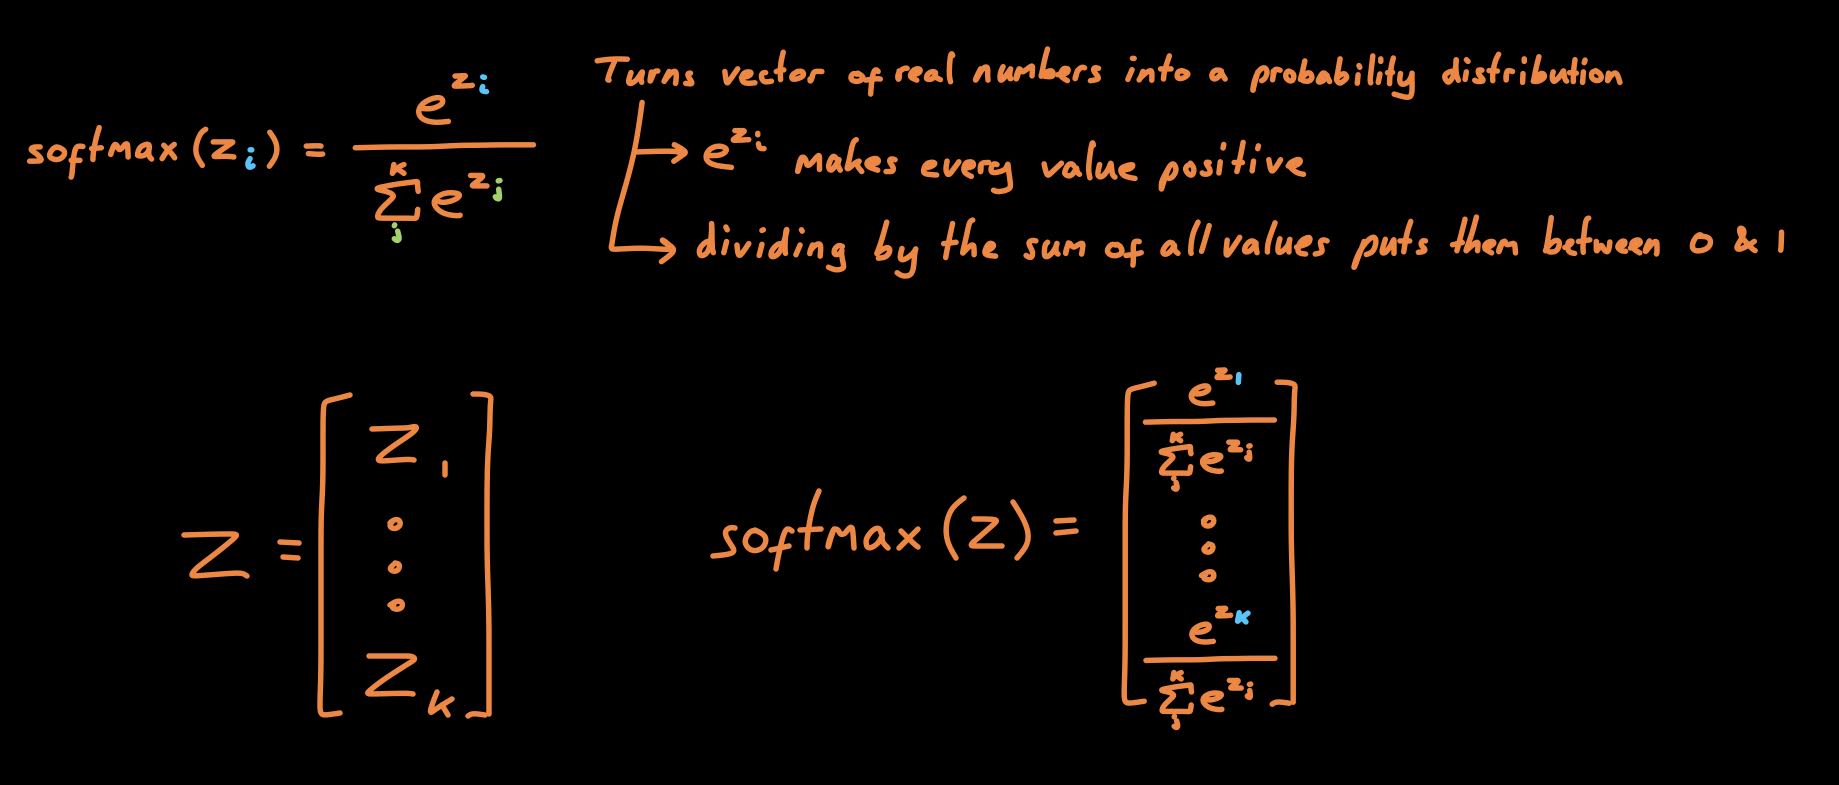 softmax(zᵢ) = e^{zᵢ} / ∑_{j}^{k} e^{zⱼ}
Turns vector of real numbers into a probability distribution
→ e^{zᵢ} makes every value positive
→ dividing by the sum of all values puts them between 0 & 1
Z = [ Z₁ ∘ ∘ ∘ Z_k ]
softmax(Z) = [ e^{z₁} / ∑_{j}^{k} e^{zⱼ} ∘ ∘ ∘ e^{z_k} / ∑_{j}^{k} e^{zⱼ} ]